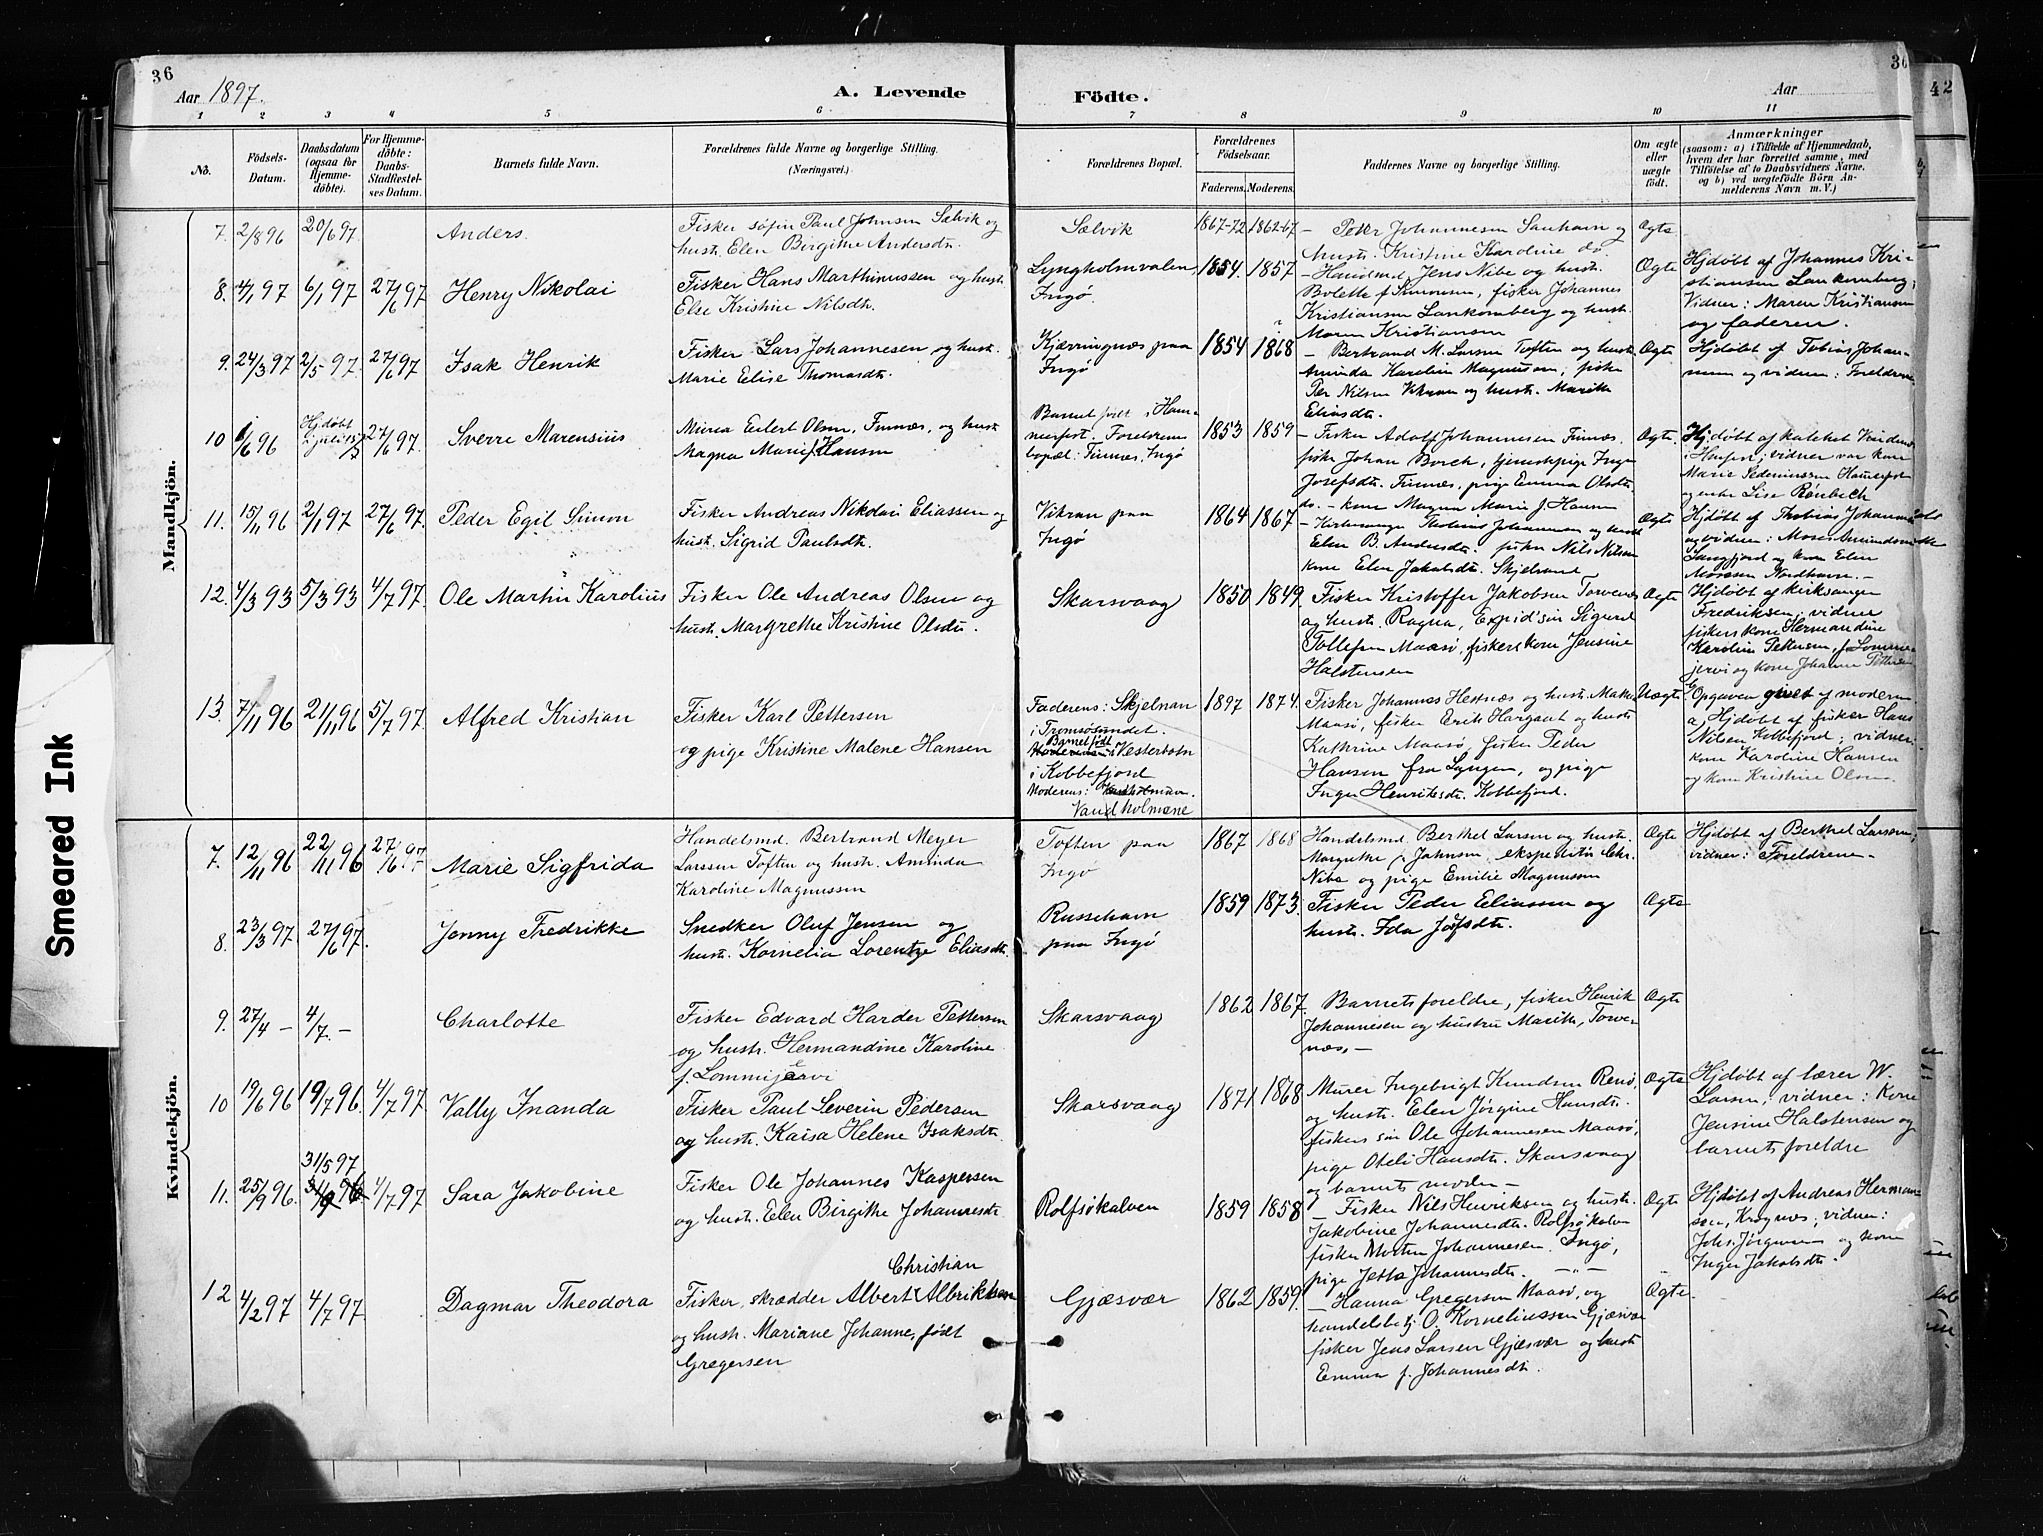 36
Aar 1897.
A. Levende
Födte.
Aar
36
42
1 2 3 4 5 6 7 8 9 10 11
No.
Födsels-Datum.
Daabsdatum (ogsaa for Hjemmedöbte).
For Hjemmedöbte: Daabs-Stadfæstelses Datum.
Barnets fulde Navn.
Forældrenes fulde Navne og borgerlige Stilling. (Næringsvei.)
Forældrenes Bopæl.
Forældrenes Födselsaar.
Faderens. Moderens.
Faddernes Navne og borgerlige Stilling.
Om ægte eller uægte födt.
Anmærkninger (saasom: a) i Tilfælde af Hjemmedaab, hvem der har forrettet samme, med Tilföielse af to Daabsvidners Navne, og b) ved uægtefödte Börn Anmelderens Navn m. V.)
Mandkjön.
7. 2/8 96 20/6 97. Anders.
Fisker søfin Paul Johnsen Sælvik og
hust. Elen Birgitte Andersdt.
Sælvik 1867-72 1862-67
– Peter Johannesen Sanhavn og
hust. Kristine Karoline do.
Ægte
8. 4/1 97 6/1 97 27/6 97 Henry Nikolai
Fisker Hans Marthinussen og hust.
Else Kristine Nilsdt.
Lyngholmvalen,
Ingø.
1854. 1857
– Handelsmd. Jens Nibe og hust.
Bolette f. Simonsen, fisker Johannes
Kristiansen Lankornberg og hust.
Maren Kristiansen
Ægte
Hjdøbt af Johannes Kri-
stiansen Lankornberg;
Vidner: Maren Kristiansen
og faderen.
9. 24/3 97 2/5 97. 27/6 97 Isak Henrik
Fisker Lars Johannesen og hust.
Marie Elise Thomasdt.
Kjærringnæs paa
Ingø
1854 1868
– Bertrand M. Larsen Toften og hust.
Aminda Karoline Magnussen, fisker
Per Nilsen Vikran og hust. Marith
Eliasdt.
Ægte
Hjdøbt af Tobias Johan-
nesen og vidner: Foreldrene
10 1/6 96 Hjdøbt 27/6 97. Sverre Marensius
Murer Eilert Olsen, Finnæs, og hust.
Magna Marie J. Hansen
Barnet født i Ham-
merfest. Foreldrenes
bopæl: Finnæs, Ingø
1853 1859
– Fisker Adolf Johannesen Finnæs,
fisker Johan Borch, tjenestpige Inger
Josefsdt. Finnæs, pige Emma Olsdt.
do. – kone Magna Marie J. Hansen
Ægte.
Hjdøbt af kateket
i Hmfest; vidner var kone
Marie Hammerfest
og enke Lise Rönbech
11. 15/11 96 2/1 97 27/6 97. Peder Egil Simon
Fisker Andreas Nikolai Eliassen og
hust. Sigrid Paulsdt.
Vikran paa
Ingø
1864 1867
– Kirkesanger Johannesen og hust.
Elen B. Andersdt. fisker Nils Nilsen
kone Elen Jakobsdt. Skjelsand
Ægte
Hjdøbt af Tobias Johannesen
og vidner: Moses Amundsen
Langfjord og kone Elen
Mosesen Nordhavn. –
12. 4/3 93 5/3 93 4/7 97. Ole Martin Karolius
Fisker Ole Andreas Olsen og
hust. Margrethe Kristine Olsdt.
Skarsvaag 1850 1849.
Fisker Kristoffer Jakobsen Torvenes
og hust. Ragna, Expid'sin Sigurd
Tollefsen Maasø, fiskers kone Jensine
Halstensen
Ægte
Hjdøbt af kirksanger
Fredriksen; vidner
fiskers kone Hermandine
Karoline Pettersen, f. Lommi-
jervi og kone Johanne Pettersen
13. 7/11 96 21/11 96 5/7 97. Alfred Kristian
Fisker Karl Pettersen
og pige Kristine Malene Hansen
Faderens: Skjelnan
i Tromsøsundet.
Barnet født
i Vesterbotn
i Kobbefjord
Moderens:
Vandholmene
1897 1874.
Fisker Johannes Hestnæs og hust. Mathe
Maasø, fisker Erik Hargaat og hust.
Kathrine Maasø, fisker Peder
Hansen fra Lyngen, og pige
Inger Henriksdt. Kobbefjord.
Uægte
Opgaven givet af moderen
a, Hjdøbt af fisker Hans
Nilsen Kobbefjord; vidner:
kone Karoline Hansen
og kone Kristine Olsen.
Kvindekjön.
7. 12/11 96 22/11 96 27/6 97. Marie Sigfrida
Handelsmd. Bertrand Meyer
Larssen Toften og hust. Aminda
Karoline Magnussen
Toften paa
Ingø
1867 1868
Handelsmd. Berthel Larsen og hust.
Margrethe f. Johnsen, ekspeditør Chr.
Nibe og pige Emilie Magnussen
Ægte
Hjdøbt af Berthel Larsen,
vidner: Foreldrene –
8. 23/3 97. 27/6 97. Jenny Fredrikke
Snedker Oluf Jensen og
hust. Kornelia Lorentze Eliasdt.
Russehavn
paa Ingø
1859 1873.
Fisker Peder Eliassen og
hust. Ida Josfsdt.
Ægte
9. 27/4 – 4/7. – Charlotte
Fisker Edvard Harder Pettersen
og hustr. Hermandine Karoline
f. Lommijervi
Skarsvaag 1862 1867.
Barnets foreldre, fisker Henrik
Johannesen og hustru Marith, Torve-
næs, –
Ægte
10 19/6 96 19/7 96. 4/7 97 Vally Inanda
Fisker Paul Severin Pedersen
og hustr. Kaisa Helene Isaksdt.
Skarsvaag 1871 1868
Murer Ingebrigt Knudsen Renø,
og hustr. Elen Jørgine Hansdt.
fiskers sin Ole Johannesen Maasø,
pige Oteli Hansdt. Skarsvaag
og barnets moder –
Ægte
Hjdøbt af lærer W.
Larsen; vidner: Kone
Jensine Halstensen og
barnets foreldre
11. 25/9 96. 31/5 97 4/7 97 Sara Jakobine
Fisker Ole Johannes Kaspersen
og hustr. Elen Birgithe Johannesdt.
Rolfsøkalven 1859 1858
– Fisker Nils Henriksen og hustr.
Jakobine Johannesdt. Rolfsøkalven
fisker Morten Johannesen. Ingø,
pige Jetta Johannesdt. – " –
Ægte
Hjdøbt af Andreas Herman-
sen, Krognæs; vidner:
Johs. Jørgensen og kone
Inger Jakobsdt.
12 4/2 97 4/7 97. Dagmar Theodora
Christian
Fisker, skrædder Albert Albriktsen
og hustr. Mariane Johanne, født
Gregersen
Gjæsvær 1862 1859.
– Hanna Gregersen Maasø, og
handelsbetj. O. Korneliussen Gjæsvær
fisker Jens Larsen Gjæsvær og hust.
Emma f. Johannesdt.
Ægte.
Smeared Ink